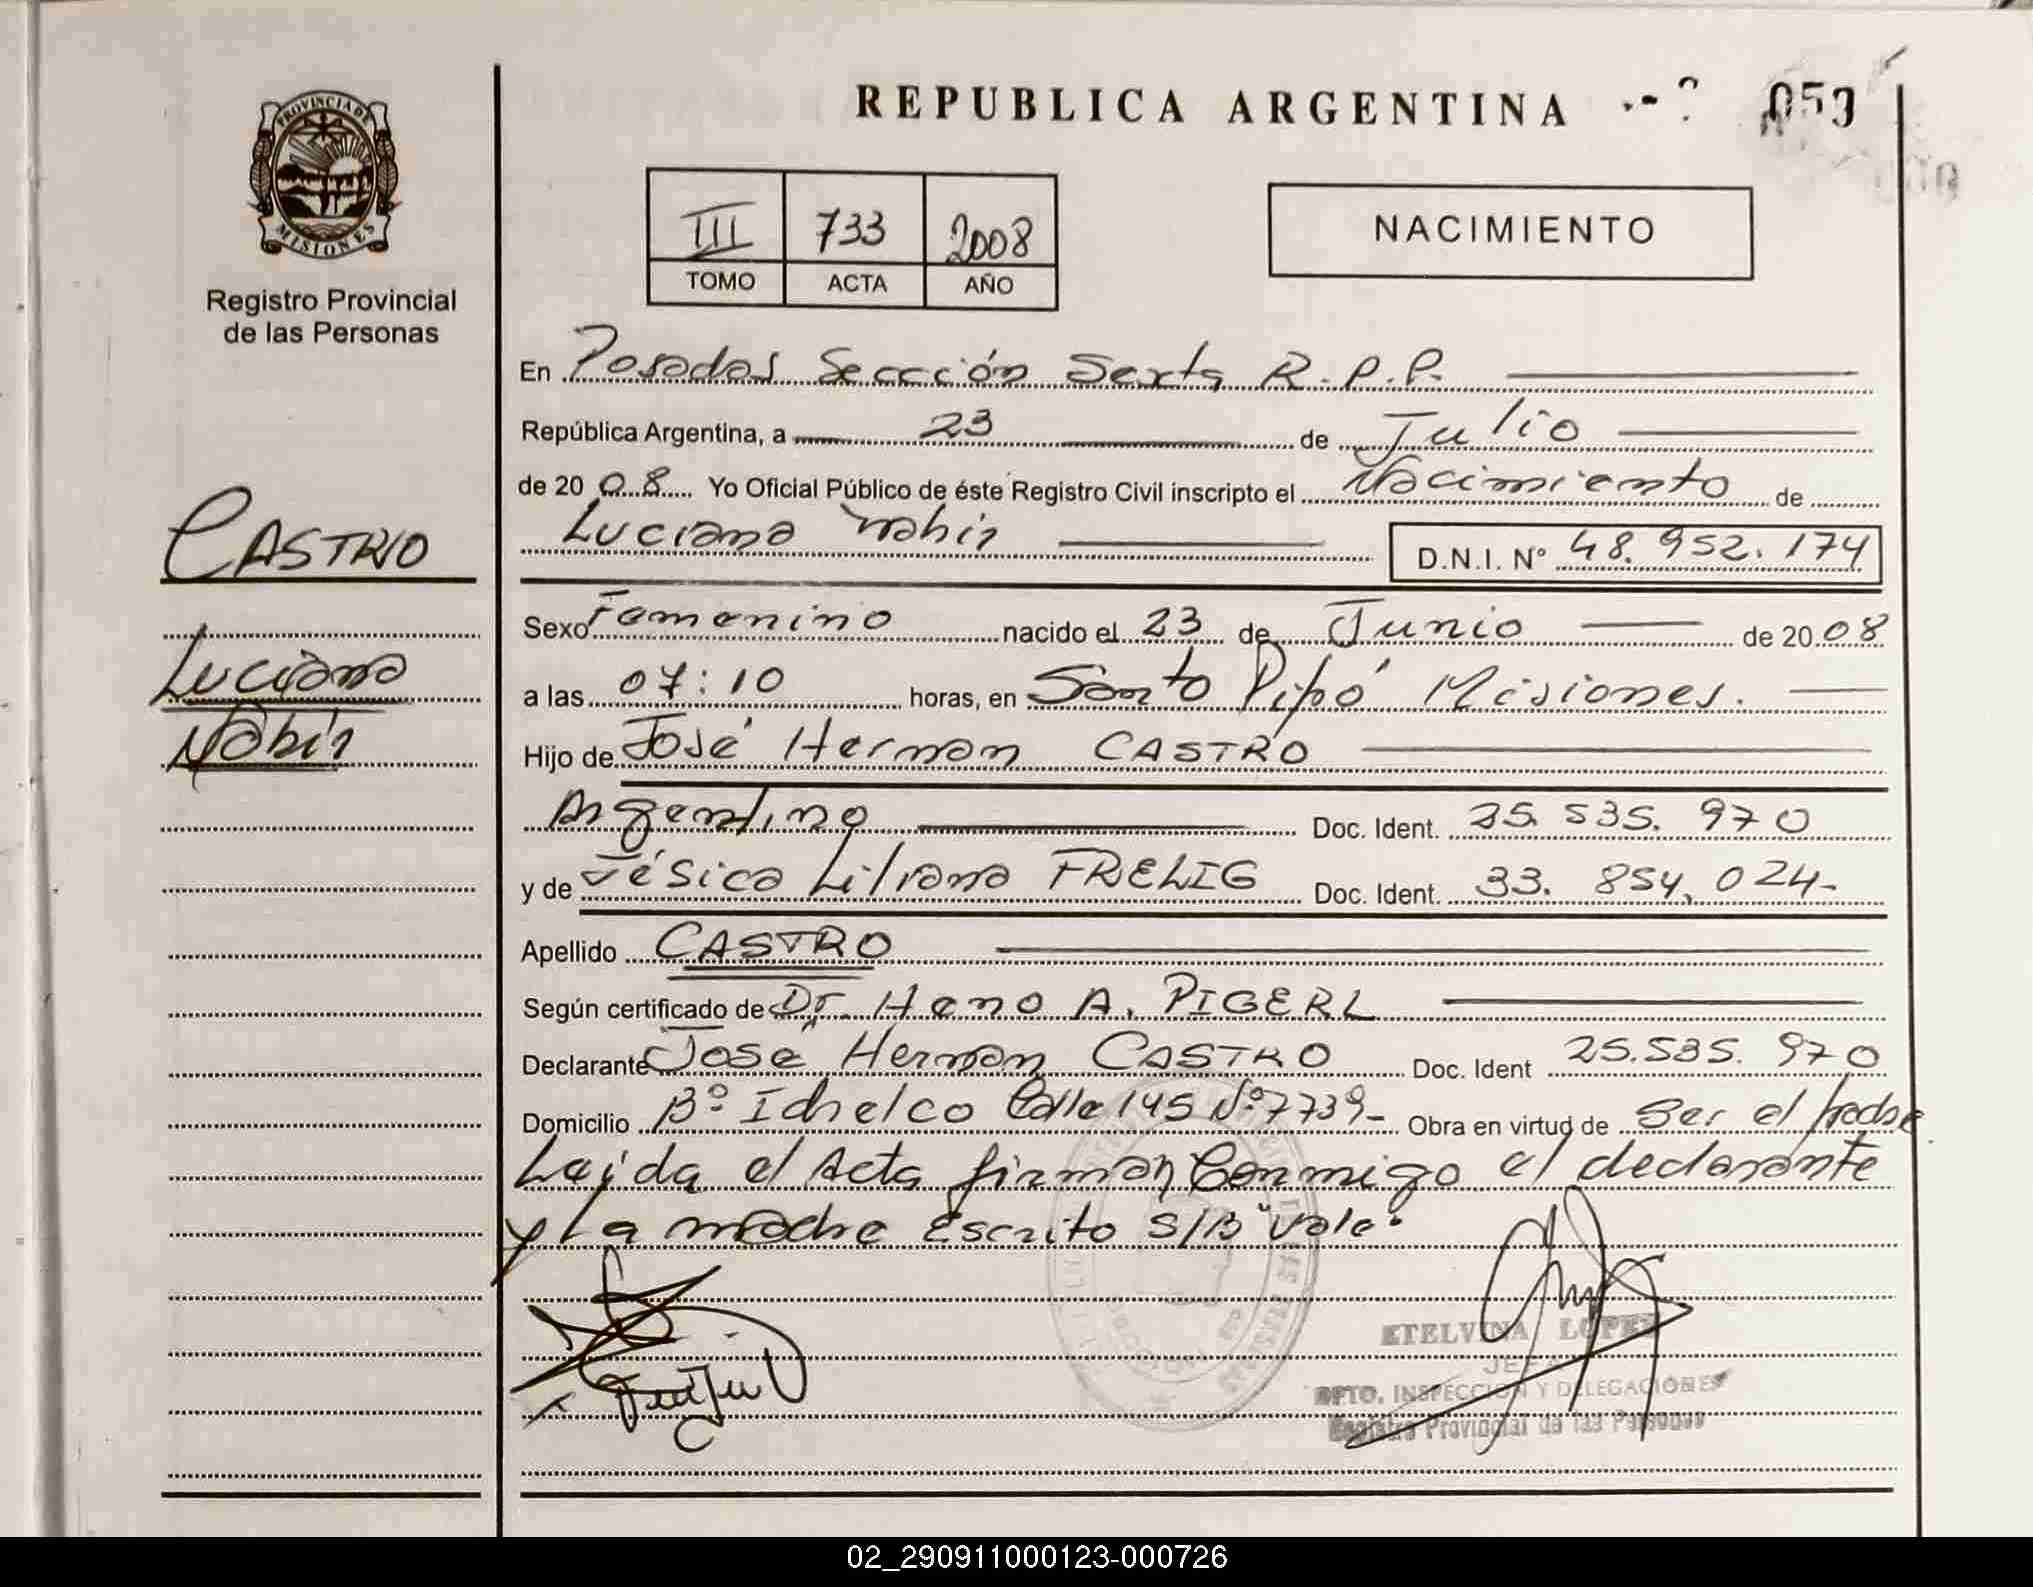 REPUBLICA ARGENTINA
053
PROVINCIA DE
MISIONES
Registro Provincial
de las Personas
III 733 2008
TOMO ACTA AÑO
NACIMIENTO
CASTRO
Luciana
Nahir
En Posadas Sección Sexta R.P.P.
República Argentina, a 23 de Julio
de 2008 Yo Oficial Público de éste Registro Civil inscripto el Nacimiento de
Luciana Nahir D.N.I. Nº 48.952.174
Sexo Femenino nacido el 23 de Junio de 2008
a las 07:10 horas, en Santo Pipó Misiones.
Hijo de José Hernan CASTRO
Argentino Doc. Ident. 25.535.970
y de Jésica Liliana FRELIG Doc. Ident. 33.854.024-
Apellido CASTRO
Según certificado de Dr. Heno A. PIGERL
Declarante José Hernan CASTRO Doc. Ident 25.535.970
Domicilio Bº Calle 145 Nº 7739- Obra en virtud de Ser el padre
Leída el Acta firman Conmigo el declarante
y La madre Escrito S/B "Vale"
ETELVINA LOPEZ
JEFA
DPTO. INSPECCION Y DELEGACIONES
Registro Provincial de las Personas
02_290911000123-000726